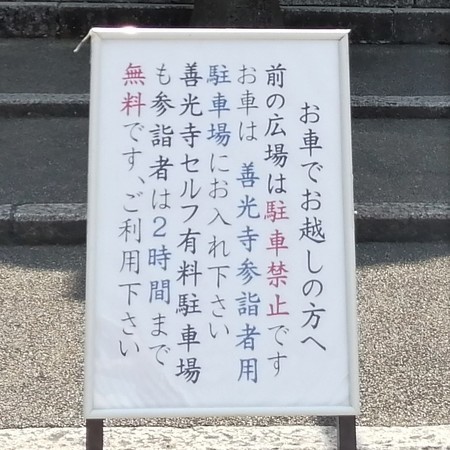 お車でお越しの方へ
前の広場は駐車禁止です
お車は 善光寺参詣者用
駐車場にお入れ下さい
善光寺セルフ有料駐車場
も参詣者は2時間まで
無料です、ご利用下さい